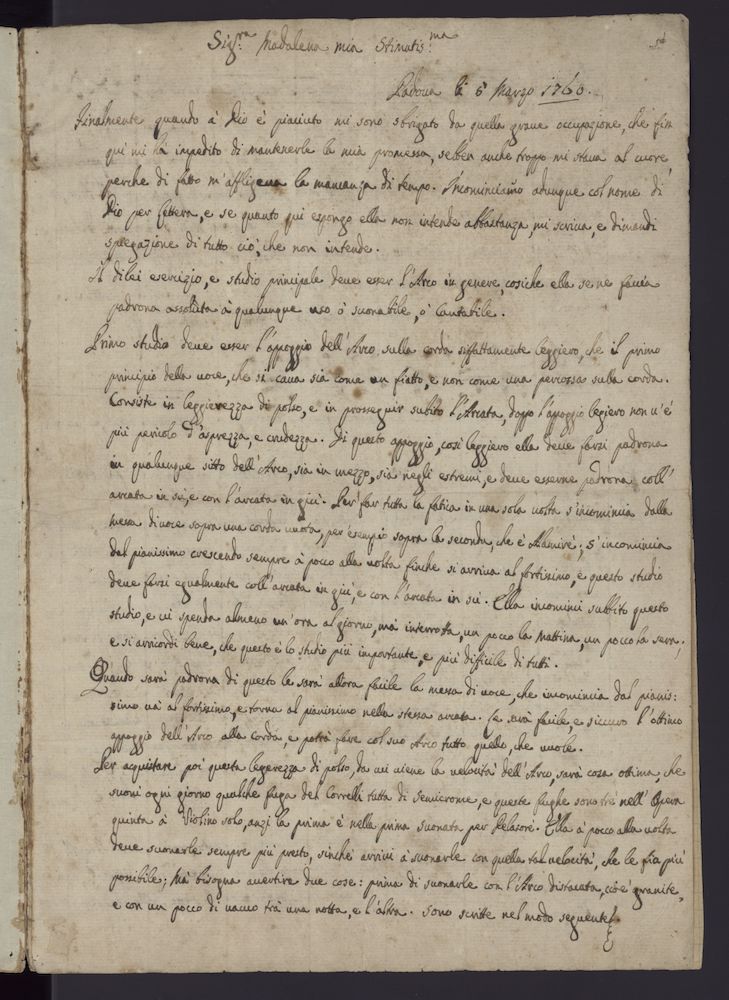 Sig.ra Madalena mia Stimatis:ma
Padova li 5 Marzo 1760.
Finalmente quando à Dio è piaciuto mi sono sbrigato da quella grave occupazione, che fin
qui mi hà impedito di mantenerle la mia promessa, sebben anche troppo mi stava al cuore,
perche di fatto m'affligeva la mancanza di tempo. Incominciamo adunque col nome di
Dio per lettera, e se quanto qui espongo ella non intende abbastanza, mi scriva, e dimandi
spiegazione di tutto ciò, che non intende.
Il dilei esercizio, e studio principale deve esser l'Arco in genere, cosiche ella se ne faccia
padrona assoluta à qualunque uso ò suonabile, ò Cantabile.
Primo studio deve esser l'appoggio dell'Arco sulla corda siffattamente leggiero, che il primo
principio della voce, che si cava sia come un fiatto, e non come una percossa sulla corda.
Consiste in leggierezza di polso, e in proseguir subito l'Arcata, doppo l'appoggio legiero non v'è
più pericolo d'asprezza, e crudezza. Di questo appoggio, così leggiero ella deve farsi padrona
in qualunque sitto dell'Arco, sia in mezzo, sia negli estremi, e deve esserne padrona coll'
arcata in sù, e con l'arcata in giù. Per far tutta la fatica in una sola volta s'incomincia dalla
messa di voce sopra una corda vuota, per esempio sopra la seconda, che è Alamirè; s'incomincia
dal pianissimo crescendo sempre à pocco alla volta finche si arriva al fortissimo, e questo studio
deve farsi egualmente coll'arcata in giù, e con l'arcata in sù. Ella incominci subbito questo
studio, e ci spenda almeno un'ora al giorno, mà interrotta, un pocco la mattina, un pocco la sera;
e si arricordi bene, che questo è lo studio più importante, e più difficile di tutti.
Quando sarà padrona di questo le sarà allora facile la messa di voce, che incomincia dal pianis:
simo và al fortissimo, e torna al pianissimo nella stessa arcata. Le sarà facile, e siccuro l'ottimo
appoggio dell'Arco alla corda, e potrà fare col suo Arco tutto quello, che vuole.
Per acquistare poi questa legerezza di polso, da cui viene la velocità dell'Arco, sarà cosa ottima, che
suoni ogni giorno qualche fuga del Correlli tutta di Semicrome, e queste fughe sono trè nell'Opera
quinta à Violino solo, anzi la prima è nella prima suonata per Delasorè. Ella à pocco alla volta
deve suonarle sempre più presto, sinchè arrivi à suonarle con quella tal velocità, che le sia più
possibile; Mà bisogna avertire due cose: prima di suonarle con l'Arco distaccato, cioè granite,
e con un pocco di vacuo trà una notta, e l'altra. Sono scritte nel modo seguente